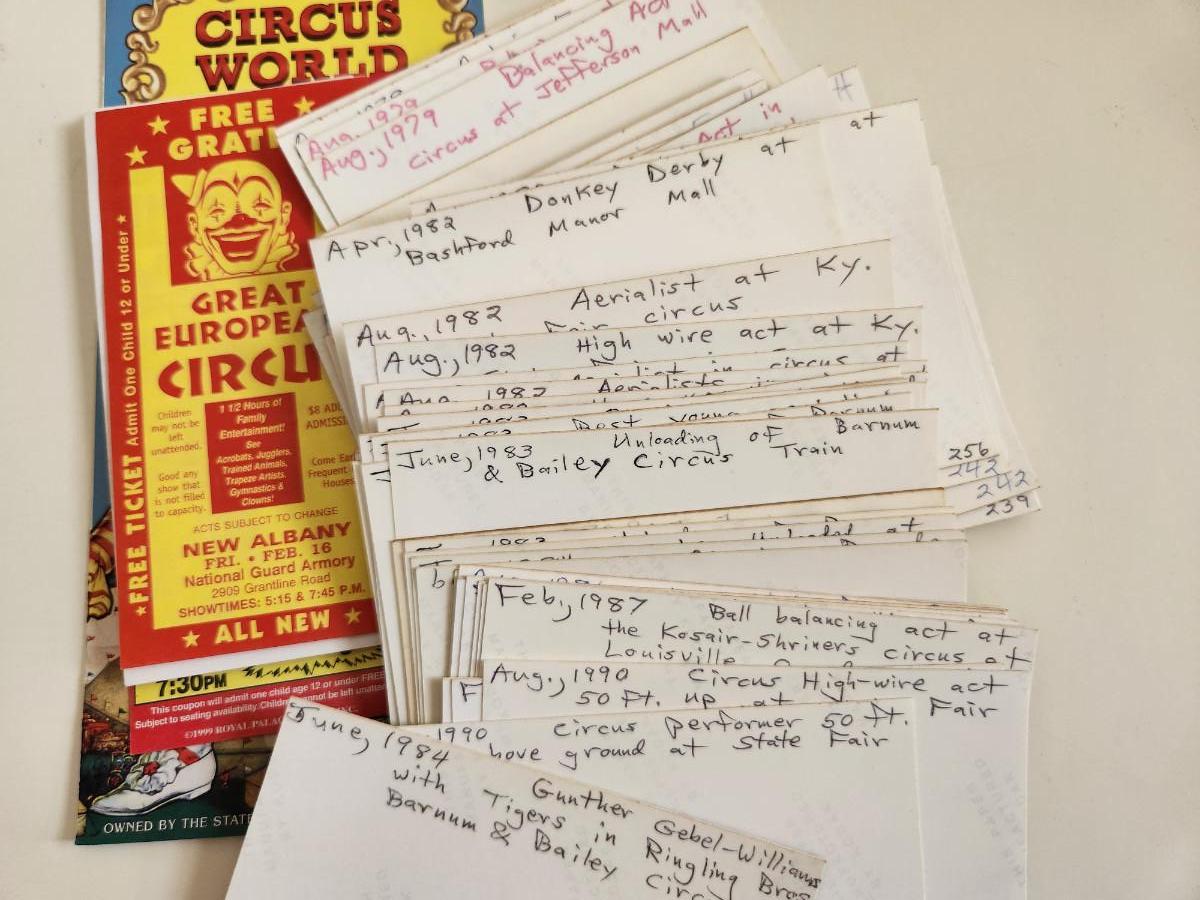 CIRCUS
WORLD
FREE
GREAT
EUROPEA
CIRCU
FREE TICKET Admit One Child 12 or Under
Children
may not be
left
unattended.
Good any
show that
is not filled
to capacity.
1 1/2 Hours of
Family
Entertainment!
See
Acrobats, Jugglers,
Trained Animals,
Trapeze Artists,
Gymnastics &
Clowns!
$8
Come
Frequent
House
ACTS SUBJECT TO CHANGE
NEW ALBANY
FRI. • FEB. 16
National Guard Armory
2909 Grantline Road
SHOWTIMES: 5:15 & 7:45 P.M.
ALL NEW
7:30PM
This coupon will admit one child age 12 or under FREE
Subject to seating availability.
©1999 ROYAL
OWNED BY THE STATE
Balancing
Aug. 1979
Aug., 1979
circus at Jefferson Mall
Act in
H
at
Apr., 1982 Donkey Derby at
Bashford Manor Mall
Aug., 1982 Aerialist at Ky.
Fair circus
Aug., 1982 High wire act at Ky.
in circus at
Aug. 1982 Aerialists
June, 1983 Unloading of Barnum
& Bailey Circus Train
256
242
242
239
at
Feb., 1987 Ball balancing act at
the Kosair-Shriners circus at
Louisville
F
Aug., 1990 Circus High-wire act
50 Ft. up at Fair
1990 Circus performer 50 ft.
bove ground at State Fair
June, 1984 Gunther Gebel-Williams
with Tigers in Ringling Bros
Barnum & Bailey Circ